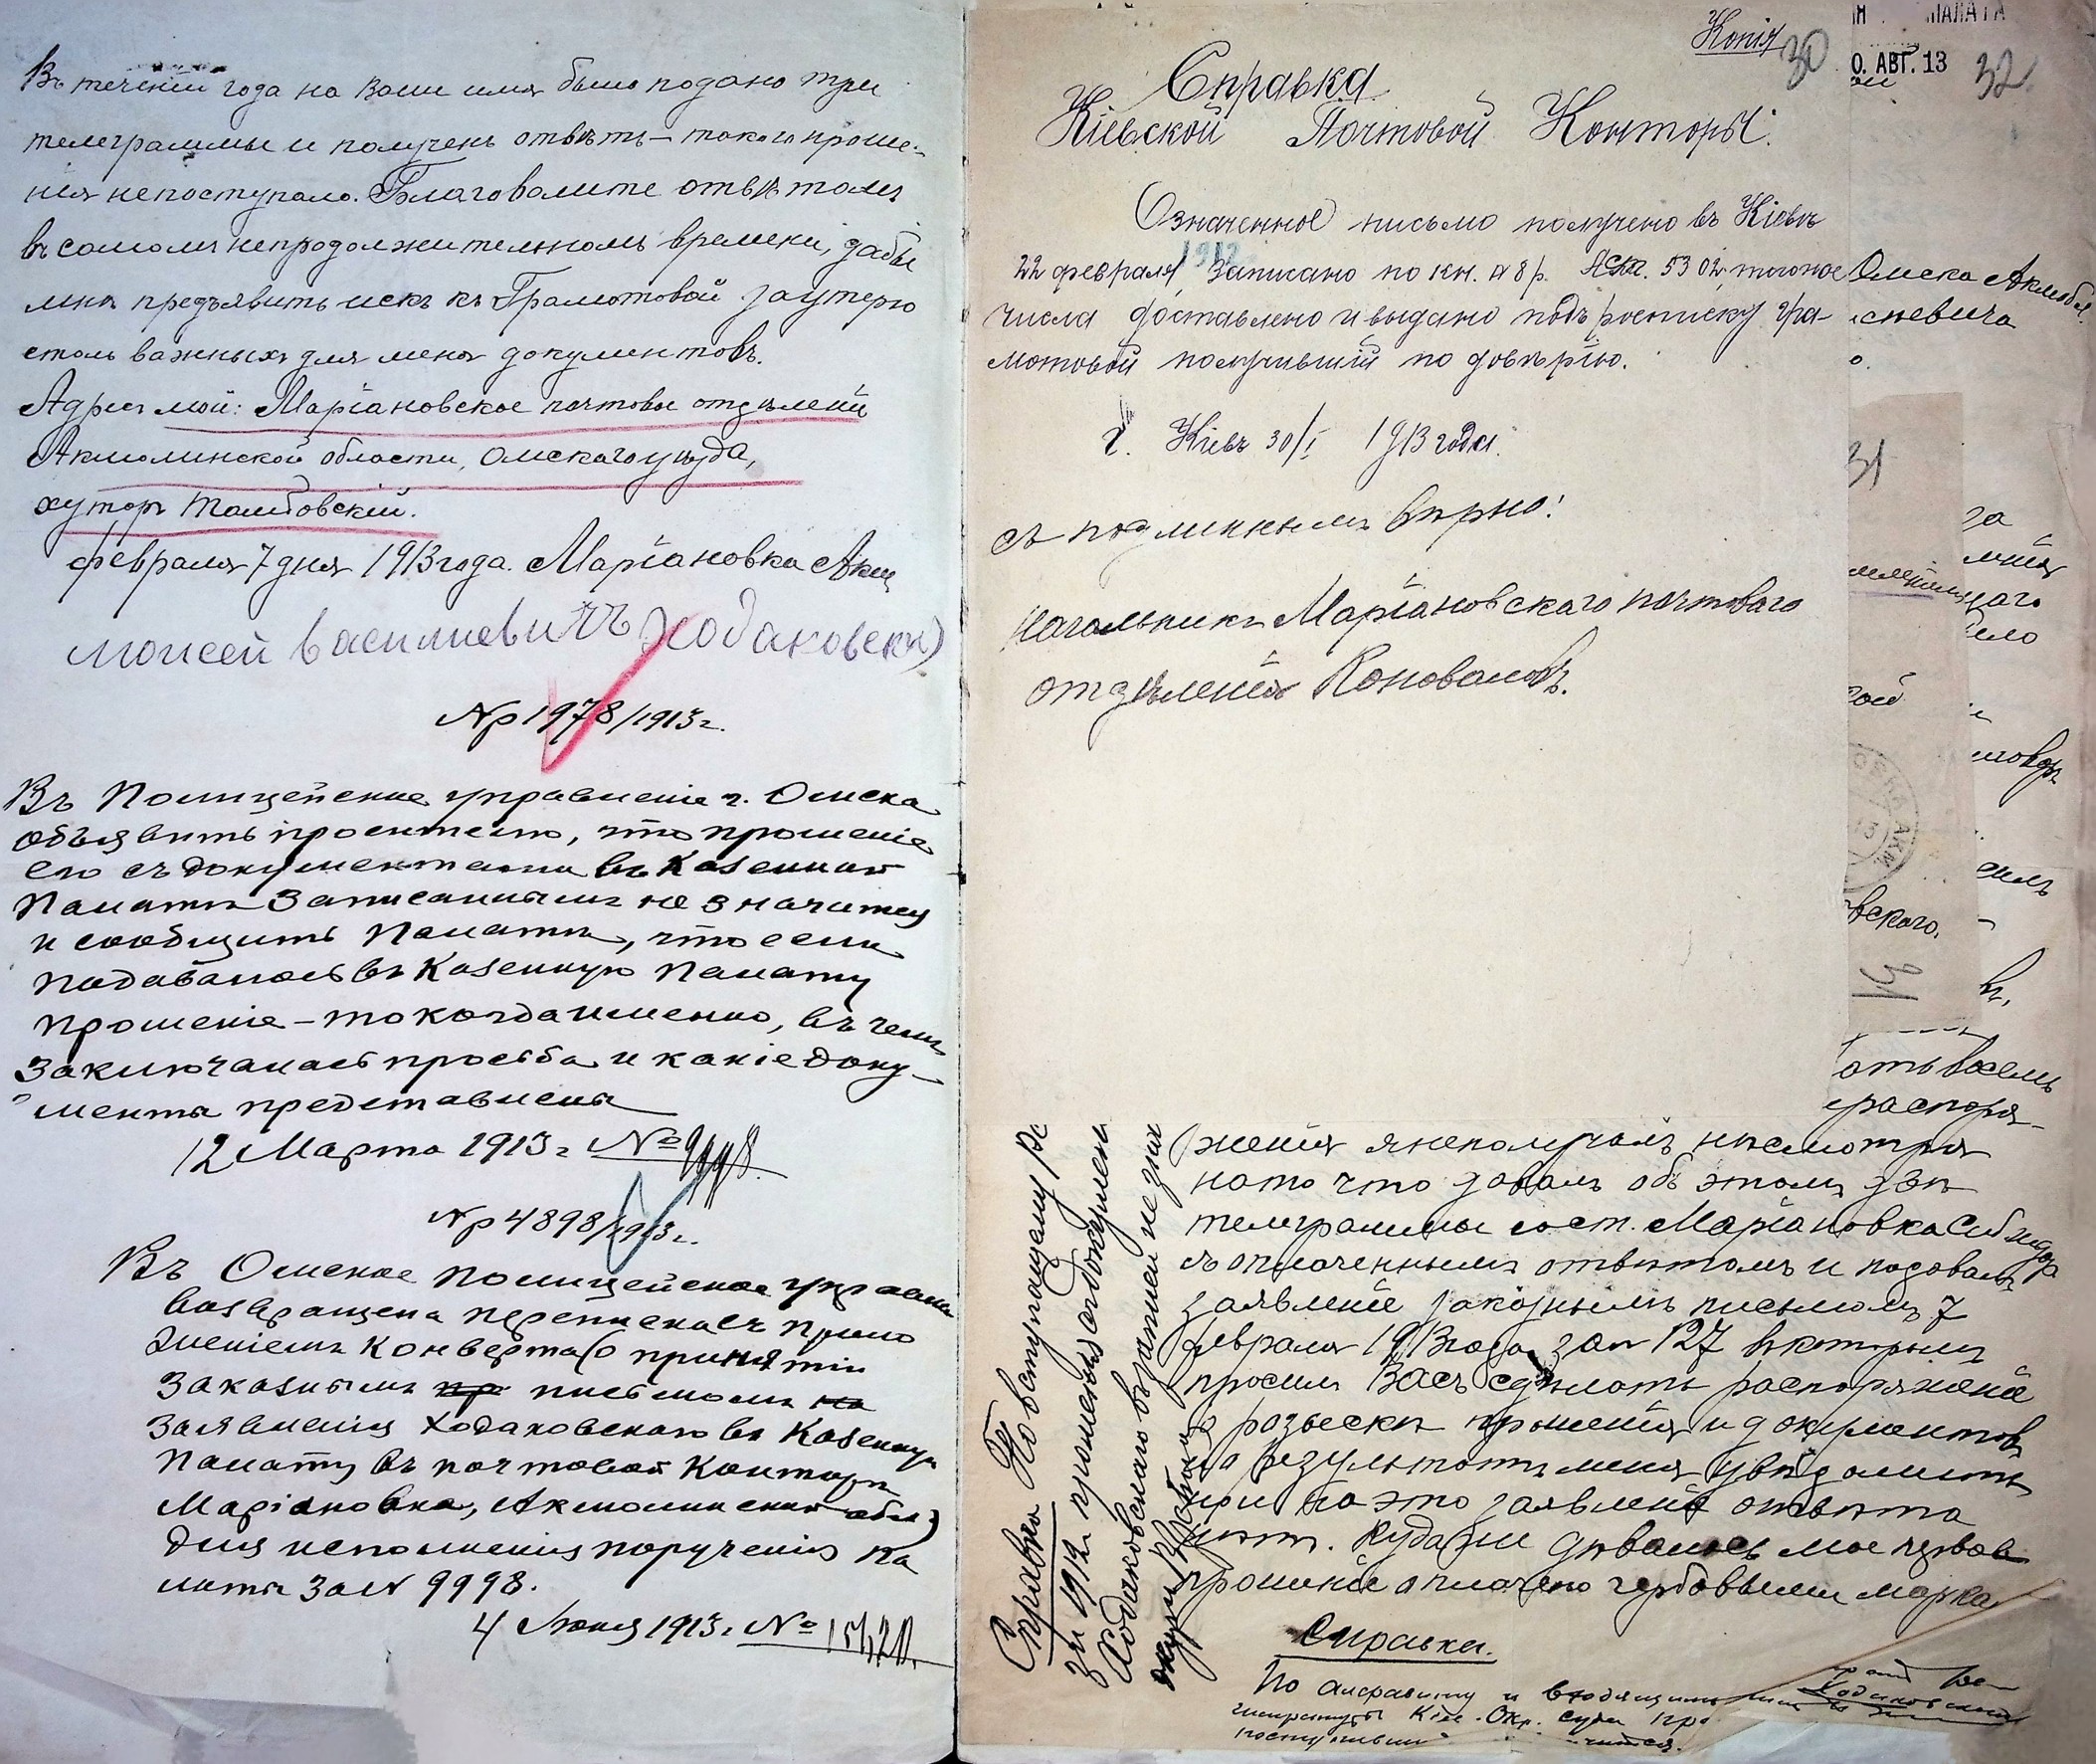 Въ теченіи года на Ваши имя было подано три
телеграммы и получень отвѣть – такого проше-
нія непоступало. Благоволите отвѣтомъ
въ самомъ непродолжительномъ времени, дабы
мнѣ предъявить искъ къ Грамотовой за утерю
столь важныхъ для меня документовъ.
Адресъ мой: Маріановское почтовое отдѣленіе
Акмолинской области, Омскаго уѣзда,
хуторъ Тамбовскій.
февраля 7 дня 1913 года. Маріановка Акм
Моисей Васильевичъ Ходаковскій
Nр 1978/1913 г.
Въ Полицейское управленіе г. Омска
объявить просителю, что прошеніе
его съ документами въ Казенной
Палатѣ записаннымъ не значится
и сообщить Палатѣ, что если
подавалось въ Казенную Палату
прошеніе – то когда именно, въ чемъ
заключалась просьба и какіе доку-
менты представлены
12 Марта 1913 г. № 9998.
Nр 4898/1913 г.
Въ Омское Полицейское управлен
возвращена переписка съ прило
женіемъ конверта (о принятіи
заказнымъ письмомъ
заявленія Ходаковскаго въ Казенную
Палату въ почтовой конторѣ
Маріановка, Акмолинской обл.)
для исполненія порученія Па
латы за N 9998.
4 Іюня 1913 г. №
Копія
30
ПАЛАТА
0. АВГ. 13
32
Справка
Кіевской Почтовой Конторы.
Означенное письмо получено въ Кіевѣ
22 февраля 1912 записано по кн. N 8 р. 5302, того же
числа доставлено и выдано подъ росписку Гра-
мотовой получившій по довѣрію.
г. Кіевъ 30/I 1913 года.
съ подлиннымъ вѣрно:
Начальникъ Маріановскаго почтоваго
отдѣленія Коноваловъ.
Омска Акмобл.
сневича
о.
31
за
наго
было
кой
АКМ
13
вскаго.
31
распоря-
женія я неполучалъ несмотря
на то что давалъ объ этомъ двѣ
телеграммы со ст. Маріановка Сиб жд
съ оплоченнымъ отвѣтомъ и подовалъ
заявленіе закознымъ письмомъ 7
февраля 1913 года за N 127 въ которомъ
просилъ Васъ сдѣлать распоряженіе
о розыскѣ прошенія и документовъ
и о результатѣ меня увѣдомить
но и на это заявленіе отвѣта
нѣтъ. Куда же дѣвалось мое первое
прошеніе оплочено гербовыми марка
Справка По вступащему
за 1912 г. прошенія о документ
Ходаковскаго взятыми не знач
Справка.
По алфавиту и входящимъ
Кіев. Окр. Суда про
поступившимъ
Ходаковскаго